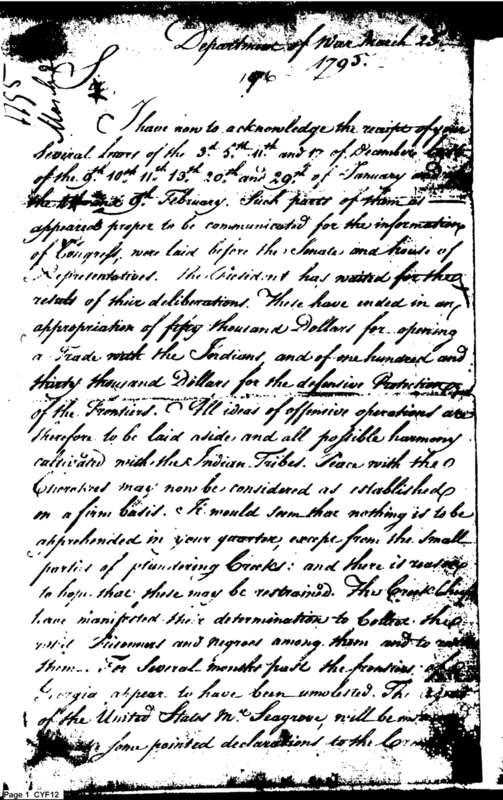 Department of War March 23d
1795.
1795
March 23
Sir
I have now to acknowledge the receipt of your
Several letters of the 3d. 5th. 11th and 17 of December
of the 9th 10th 11th 13th 20th and 29th of January
the and 9th February. Such parts of them as
appeared proper to be communicated for the information
of Congress, were laid before the Senate and house of
Representatives. The President has waited for the
result of their deliberations. These have ended in an
appropriation of fifty thousand Dollars for opening
a Trade with the Indians, and of one hundred and
thirty thousand Dollars for the defensive Protection
of the Frontiers. All ideas of offensive operations are
therefore to be laid aside and all possible harmony
cultivated with the Indian Tribes. Peace with the
Cherokees may now be considered as established
on a firm basis. It would seem that nothing is to be
apprehended in your quarter, except from the small
parties of plundering Creeks: and there is reason
to hope that these may be restrained. The Creek Chiefs
have manifested their determination to Collect the
Prisoners and negroes among them and to
them. For Several months past the frontiers of
Georgia appear to have been unmolested. The
of the United States Mr. Seagrove, will be
some pointed declarations to the
Page 1 CYF12